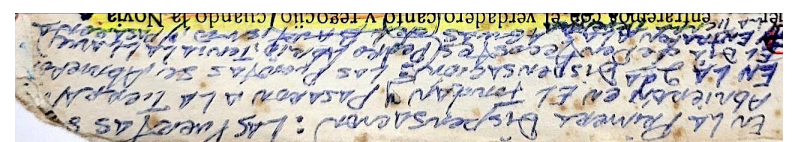 EN LA PRIMERA DISPENSACION: LAS PUERTAS S
ABRIERON EN EL JORDAN Y PASARON A LA TIERRA.
EN LA 2da DISPENSACION LAS PUERTAS SE ABRIERO
EL DIA DE PENTECOSTES PEDRO TENIA LA LLAVES
entraremos con el verdadero (canto y regocijo (cuando la Novia